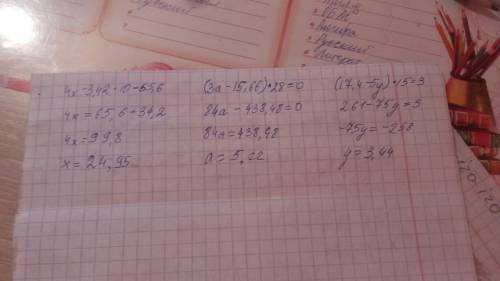 4x-3,42·10=65,6
4x=65,6+34,2
4x=99,8
x=24,95
(3a-15,66)·28=0
84a-438,48=0
84a=438,48
a=5,22
(17,4-5y)·15=3
261-75y=3
-75y=-258
y=3,44
Русский